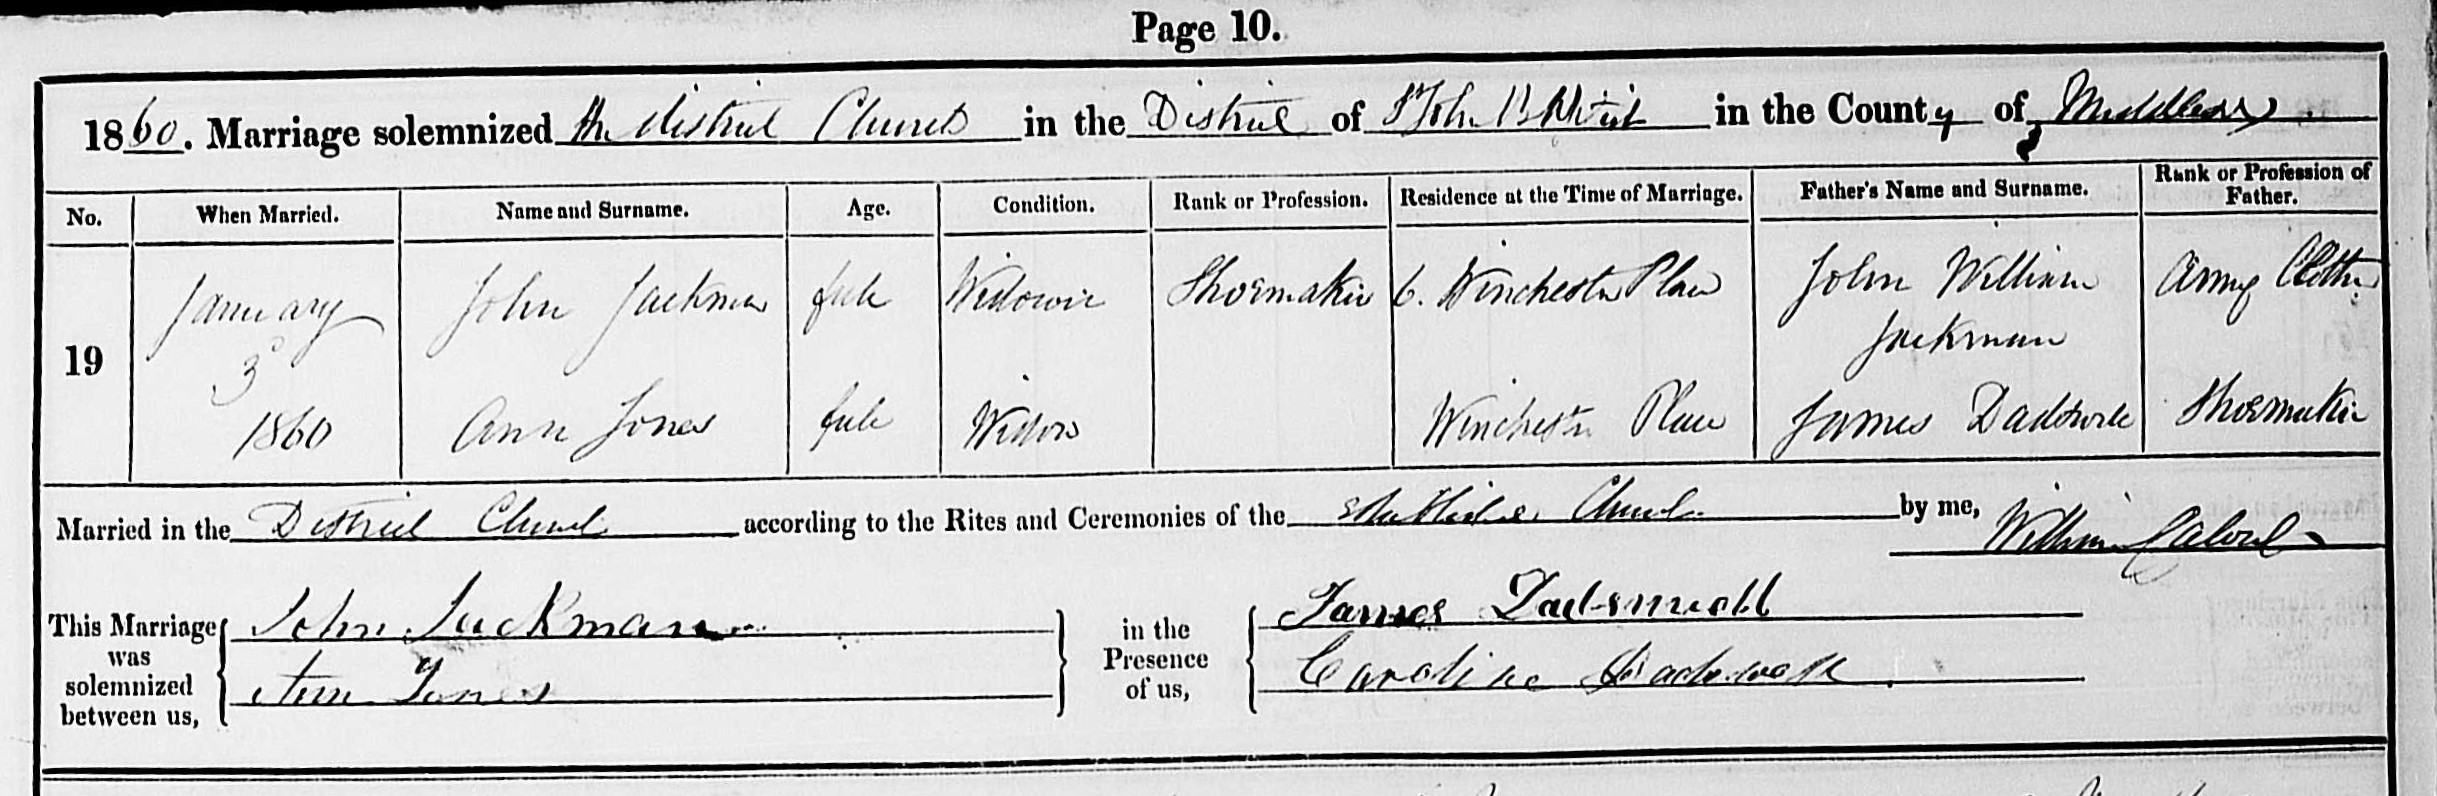 Page 10.
1860. Marriage solemnized the District Church in the District of St John Baptist in the County of Middlesex
No. When Married. Name and Surname. Age. Condition. Rank or Profession. Residence at the Time of Marriage. Father's Name and Surname. Rank or Profession of Father.
19
January 3d 1860
John Jackman full Widower Shoemaker 6. Winchester Place John William Jackman Army Clothier
Ann Jones full Widow Winchester Place James Dadswell Shoemaker
Married in the District Church according to the Rites and Ceremonies of the Established Church by me, William
This Marriage was solemnized between us, John Jackman Ann Jones in the Presence of us, James Dadswell Caroline Dadswell